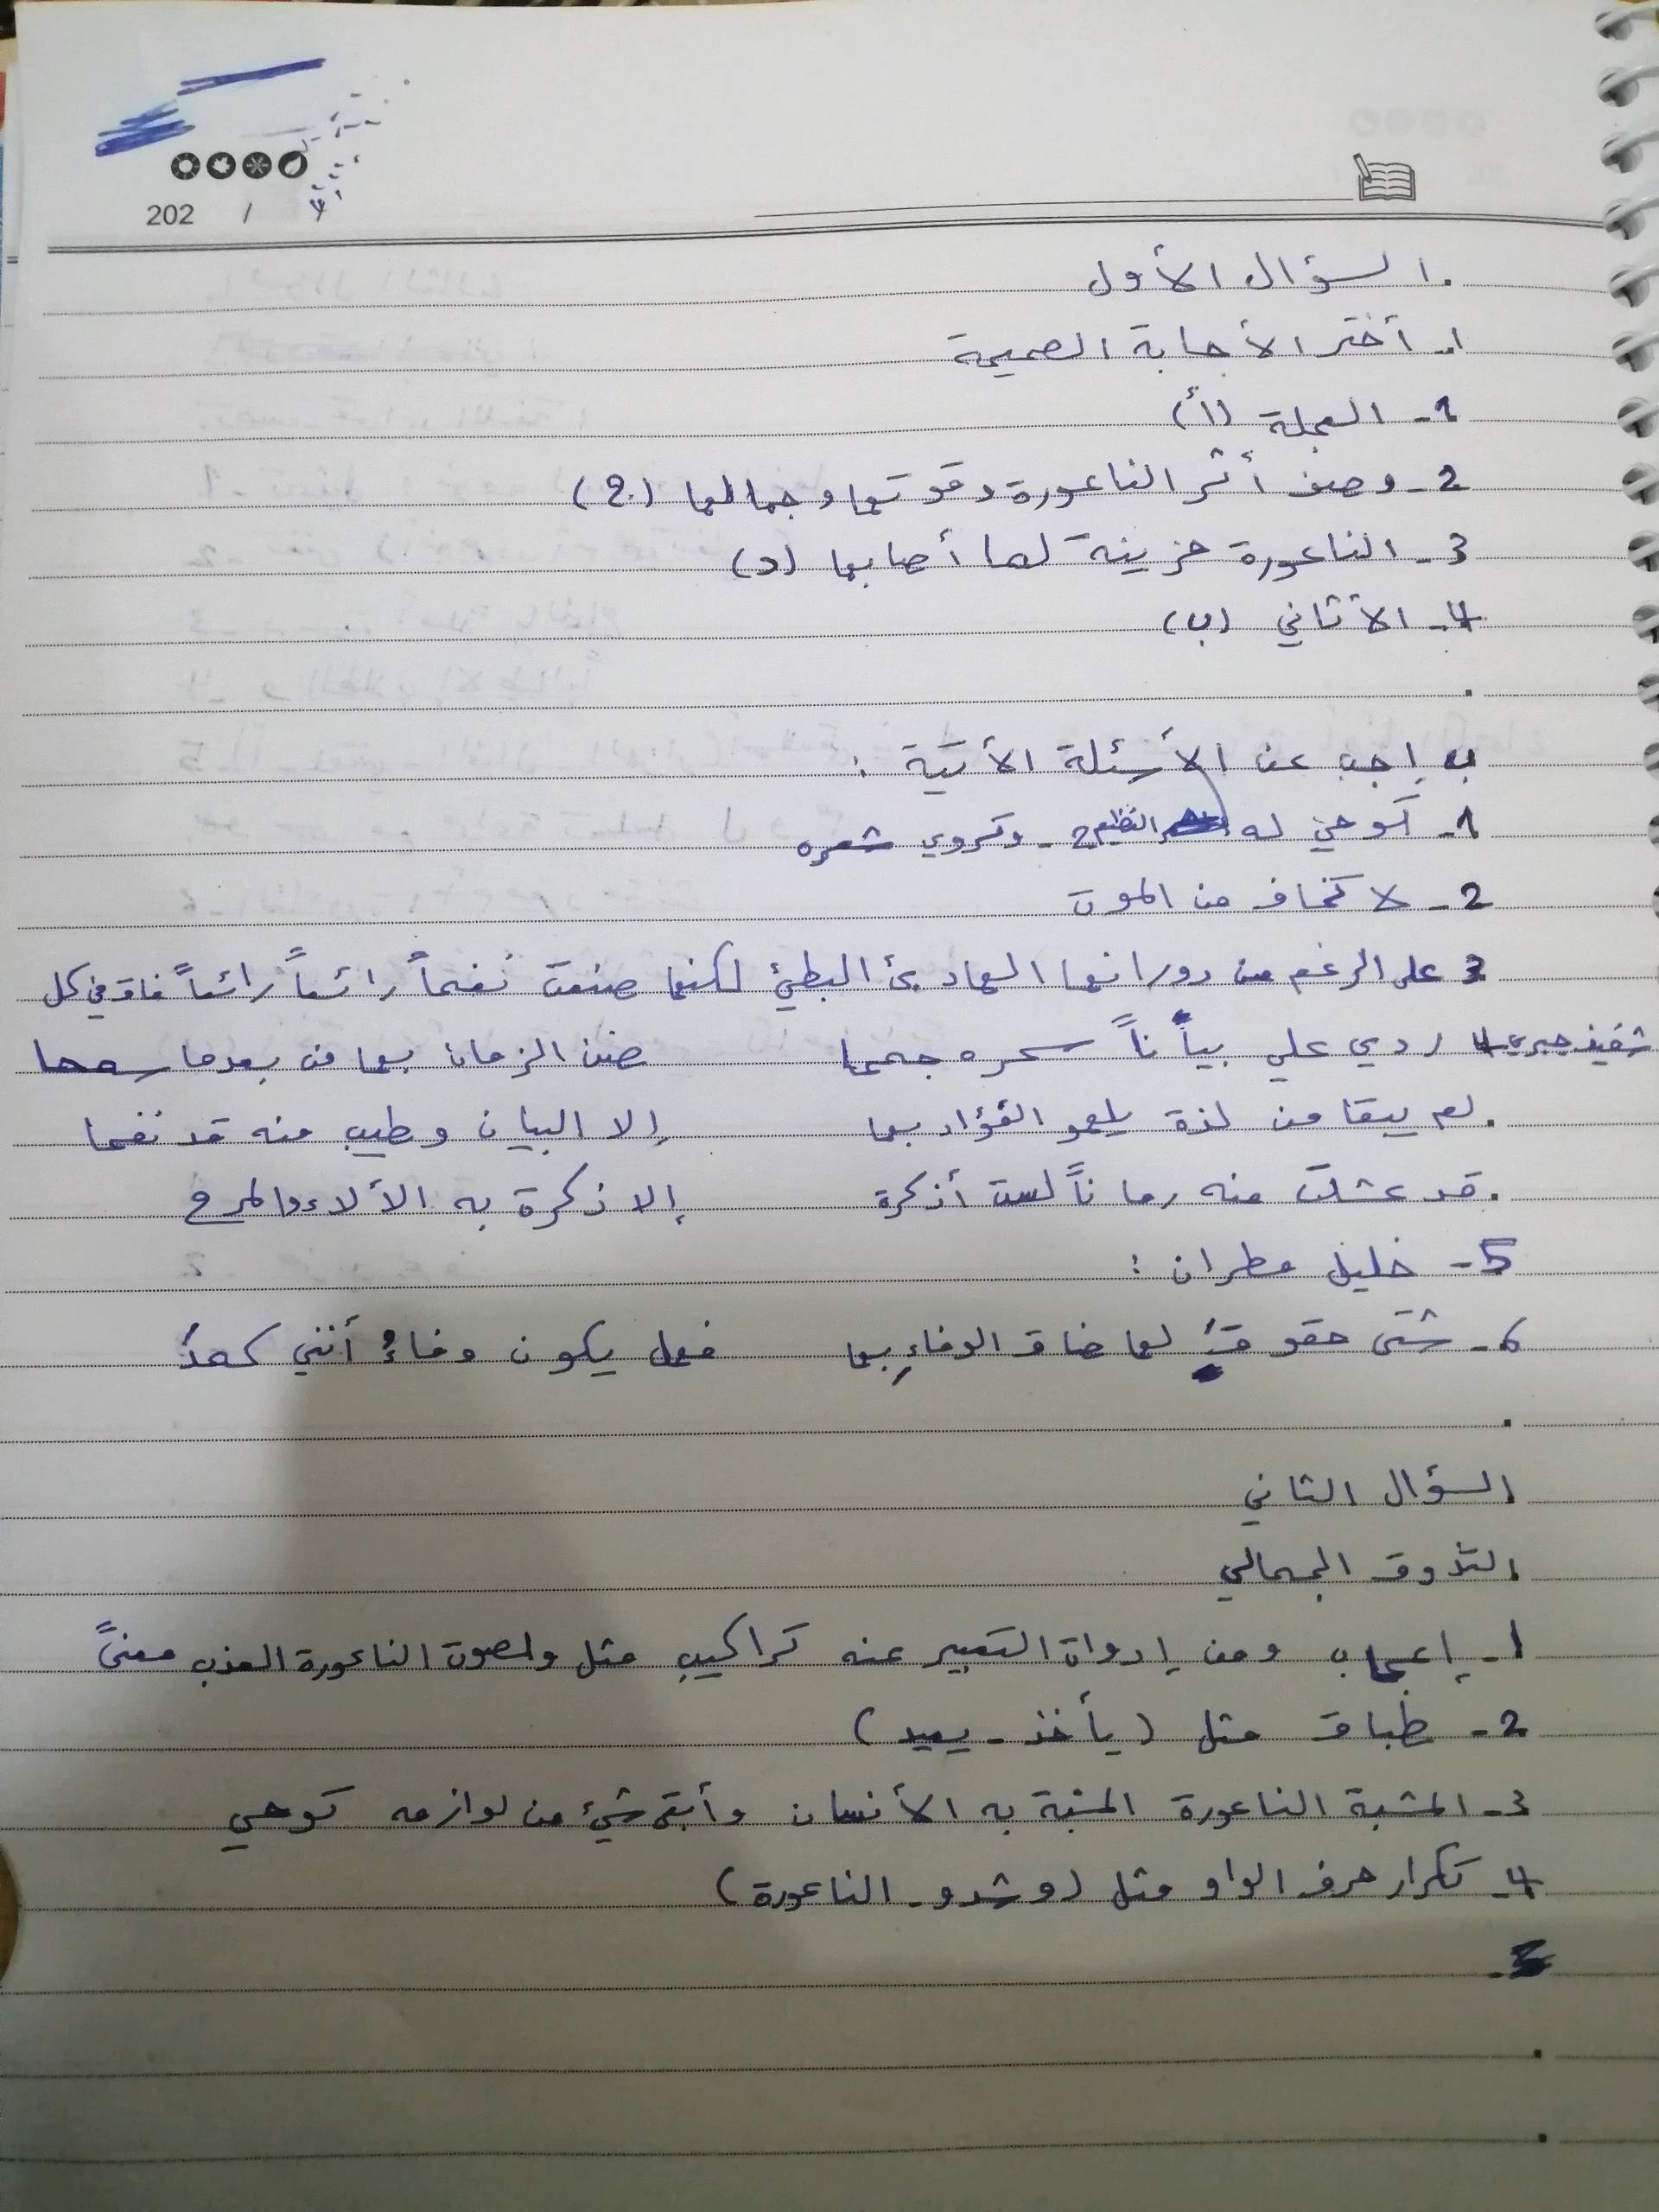 202 /
السؤال الأول
ا. أختر الأجابة الصحيحة
1- العجلة (أ)
2- وصف أثر الناعورة وقوتها وجمالها (ج)
3- الناعورة حزينة لما أصابها (د)
4- الأثاني (ب)
ب إجب عن الأسئلة الأتية :
1- توحي له النظيم - وتروي شعره
2- لا تخاف من الموت
3 على الرغم من دورانها الهادئ البطيئ لكنها صنعت نغماً رائعاً رائعاً فاق في كل
شفيق جبري 4 ردي علي بياناً سحره جمحا ضن الزمان بها من بعدما سمحا
لم يبقا من لذة يلهو الفؤاد بها إلا البيان وطيب منه قد نفحا
قد عشت منه زماناً لست أذكرة إلا ذكرة به الألاء والمرح
5- خليل مطران :
6- شتى حقوق لها ضاق الوفاءِ بها فهل يكون وفاءُ أنني كمدُ
السؤال الثاني
التذوق الجمالي
1- إعجاب ومن إدوات التعبير عنه تراكيب مثل ولصوت الناعورة العذب معنىً
2- طباق مثل (يأخذ - يعيد)
3- المشبة الناعورة المشبة به الأنسان وأبقى شيئ من لوازمه توحي
4- تكرار حرف الواو مثل (وشدو - الناعورة)